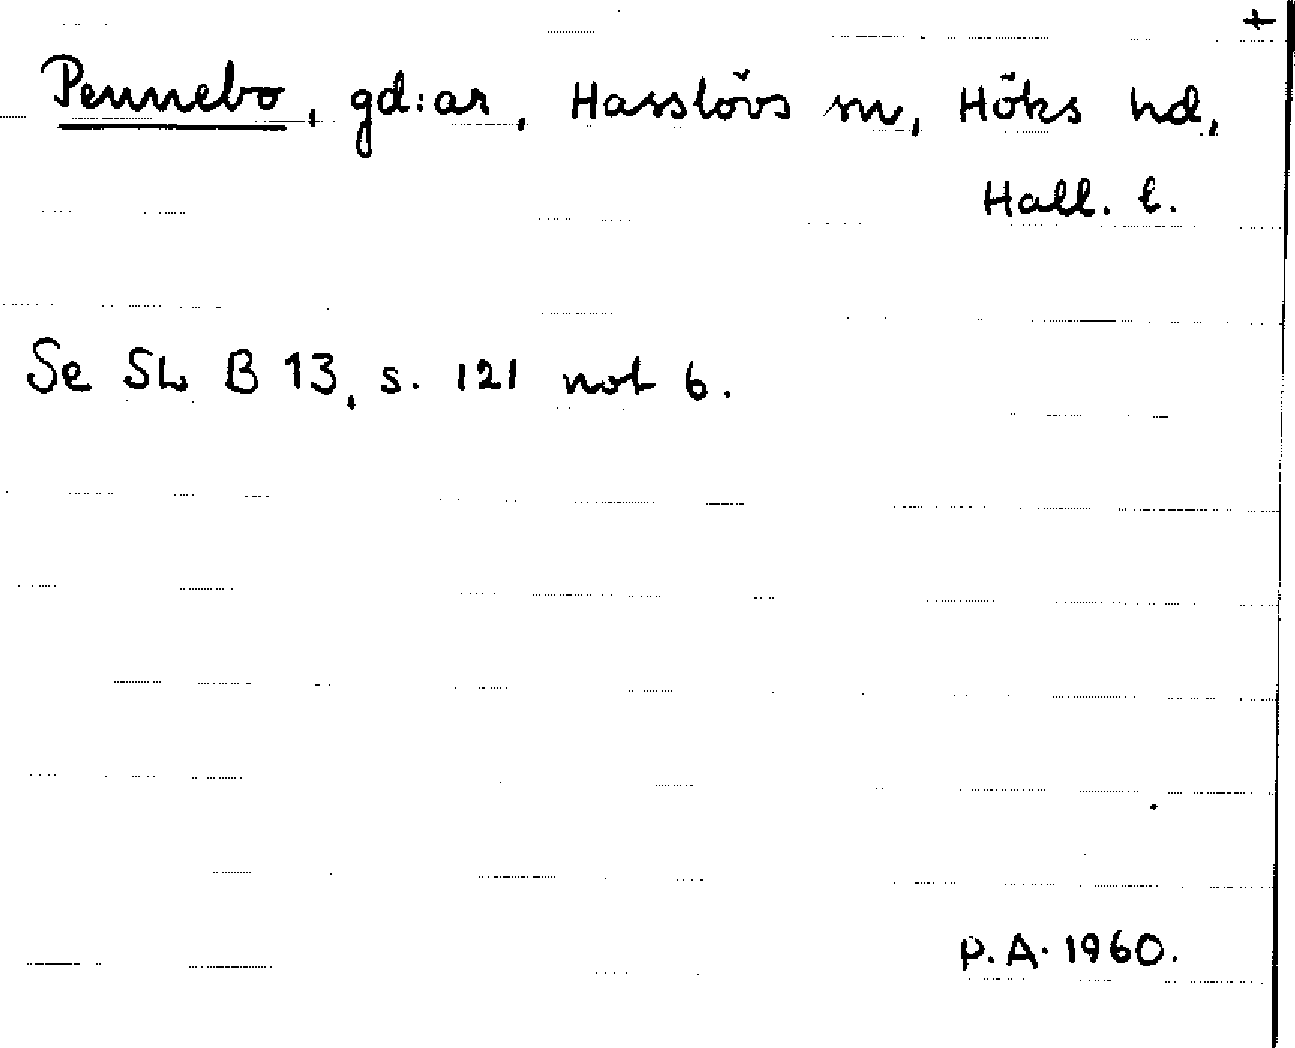 +
Pennebo, gd:ar, Hasslövs sn, Höks hd,
Hall. l.
Se SL B 13, s. 121 not 6.
P.A. 1960.